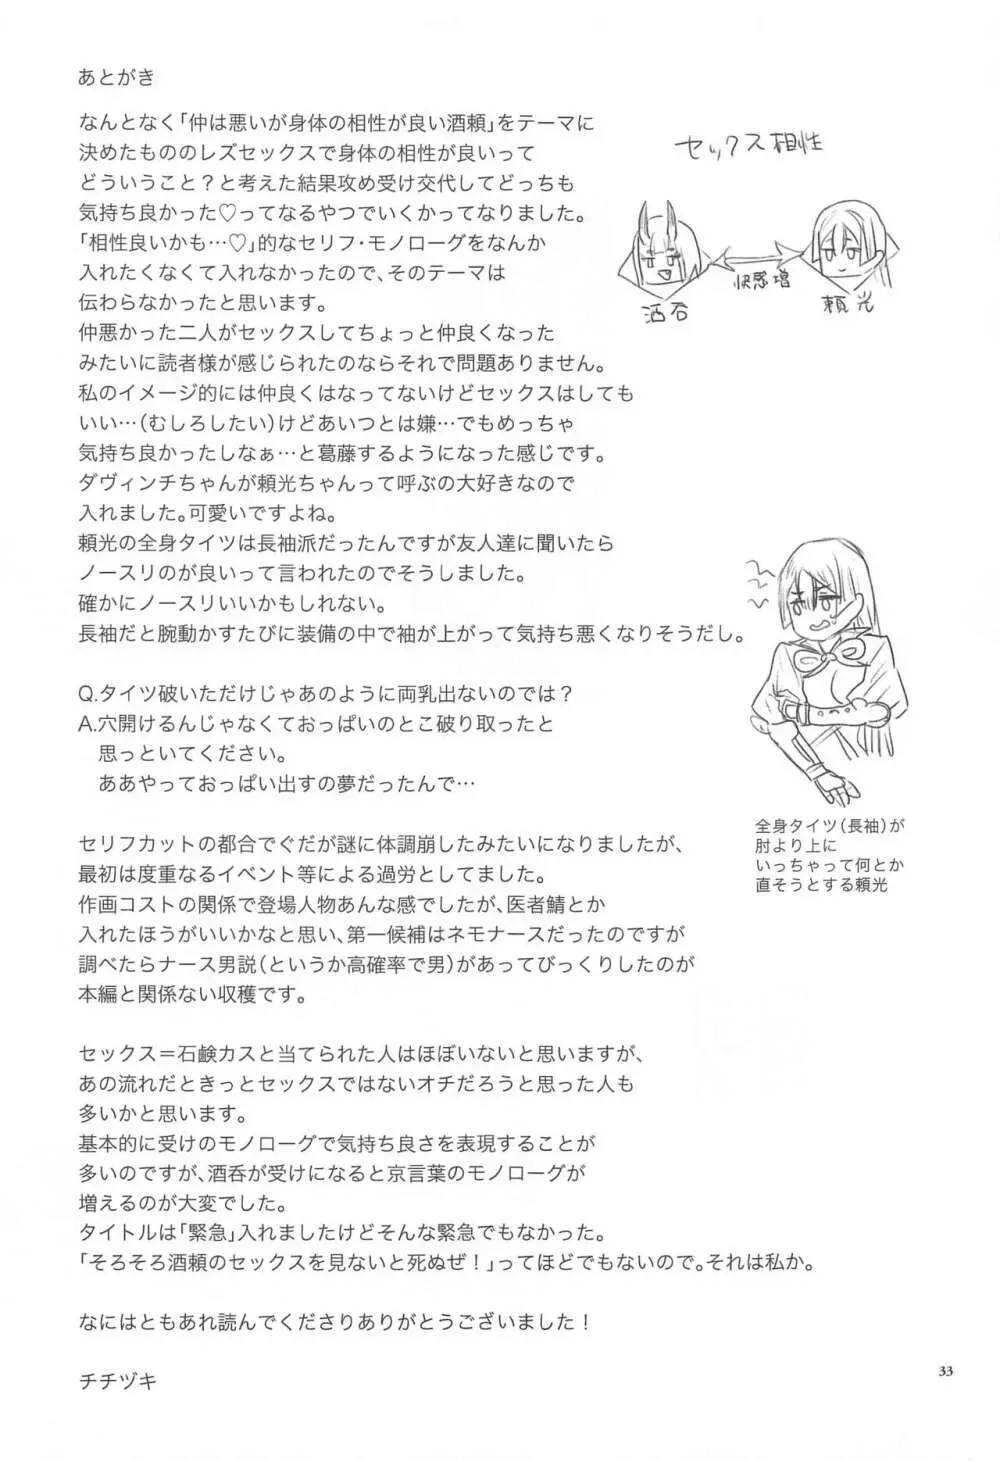 あとがき
なんとなく「仲は悪いが身体の相性が良い酒頼」をテーマに
決めたもののレズセックスで身体の相性が良いって
どういうこと？と考えた結果攻め受け交代してどっちも
気持ち良かった♡ってなるやつでいくかってなりました。
「相性良いかも…♡」的なセリフ・モノローグをなんか
入れたくなくて入れなかったので、そのテーマは
伝わらなかったと思います。
仲悪かった二人がセックスしてちょっと仲良くなった
みたいに読者様が感じられたのならそれで問題ありません。
私のイメージ的には仲良くはなってないけどセックスはしても
いい…（むしろしたい）けどあいつとは嫌…でもめっちゃ
気持ち良かったしなぁ…と葛藤するようになった感じです。
ダヴィンチちゃんが頼光ちゃんって呼ぶの大好きなので
入れました。可愛いですよね。
頼光の全身タイツは長袖派だったんですが友人達に聞いたら
ノースリのが良いって言われたのでそうしました。
確かにノースリいいかもしれない。
長袖だと腕動かすたびに装備の中で袖が上がって気持ち悪くなりそうだし。
Q.タイツ破いただけじゃあのように両乳出ないのでは？
A.穴開けるんじゃなくておっぱいのとこ破り取ったと
思っといてください。
ああやっておっぱい出すの夢だったんで…
セリフカットの都合でぐだが謎に体調崩したみたいになりましたが、
最初は度重なるイベント等による過労としてました。
作画コストの関係で登場人物あんな感でしたが、医者鯖とか
入れたほうがいいかなと思い、第一候補はネモナースだったのですが
調べたらナース男説（というか高確率で男）があってびっくりしたのが
本編と関係ない収穫です。
セックス＝石鹸カスと当てられた人はほぼいないと思いますが、
あの流れだときっとセックスではないオチだろうと思った人も
多いかと思います。
基本的に受けのモノローグで気持ち良さを表現することが
多いのですが、酒呑が受けになると京言葉のモノローグが
増えるのが大変でした。
タイトルは「緊急」入れましたけどそんな緊急でもなかった。
「そろそろ酒頼のセックスを見ないと死ぬぜ！」ってほどでもないので。それは私か。
なにはともあれ読んでくださりありがとうございました！
チチヅキ
セックス相性
快感増
酒呑
頼光
全身タイツ（長袖）が
肘より上に
いっちゃって何とか
直そうとする頼光
33